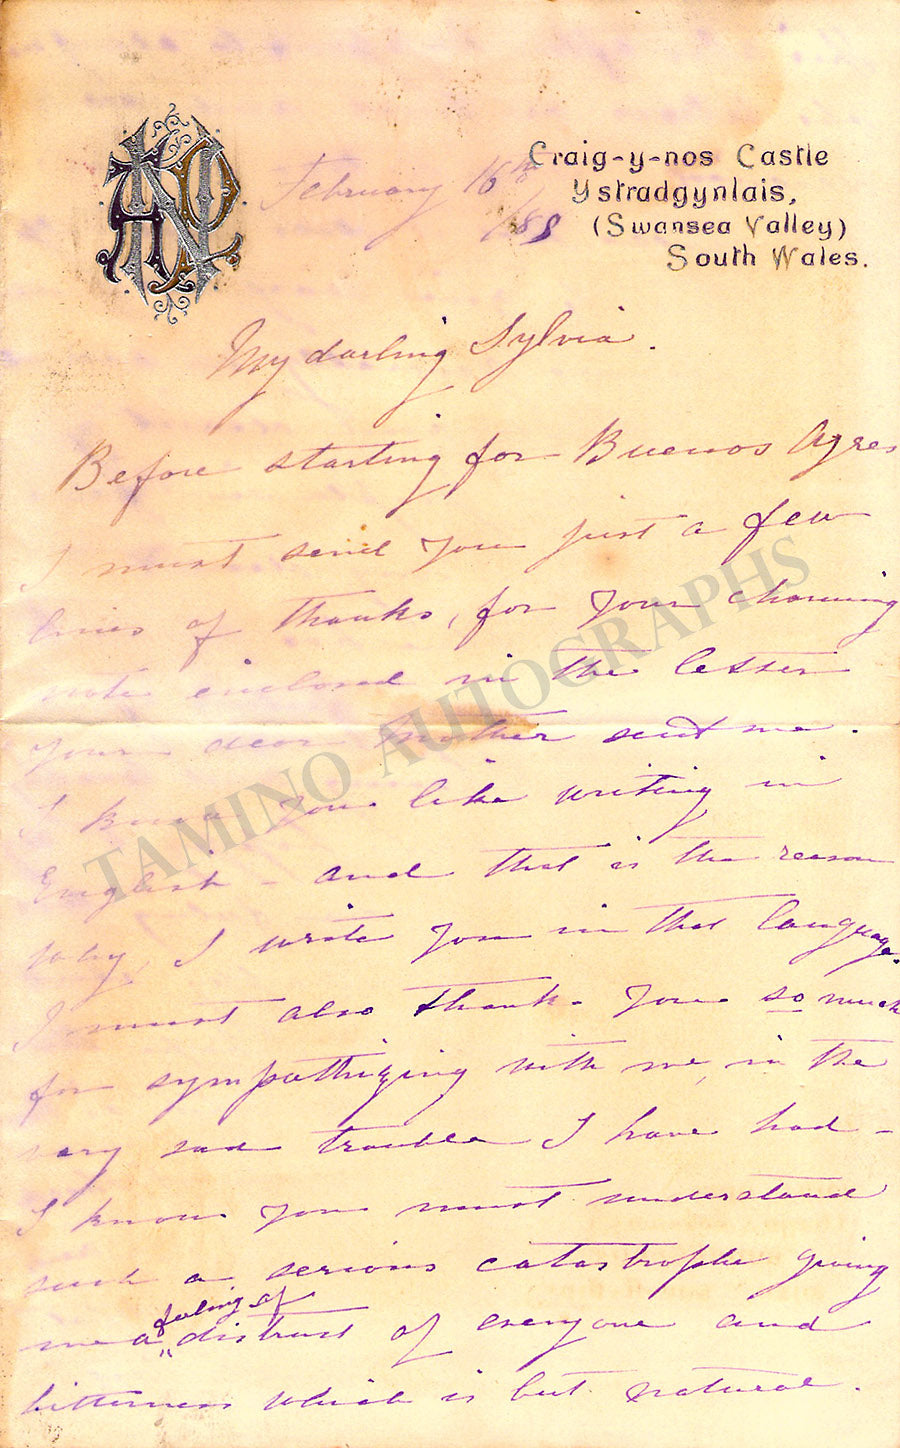 Craig-y-nos Castle
Ystradgynlais,
(Swansea Valley)
South Wales.
February 16th
/89
My darling Sylvia.
Before starting for Buenos Ayres
I must send you just a few
lines of thanks, for your charming
note enclosed in the letter
your dear Mother sent me.
I know you like writing in
English - and that is the reason
why, I write you in that language.
I must also thank you so much
for sympathizing with me, in the
very sad trouble I have had -
I know you must understand
such a serious catastrophe giving
feeling of
me a distrust of everyone and
bitterness which is but natural.
TAMINO AUTOGRAPHS